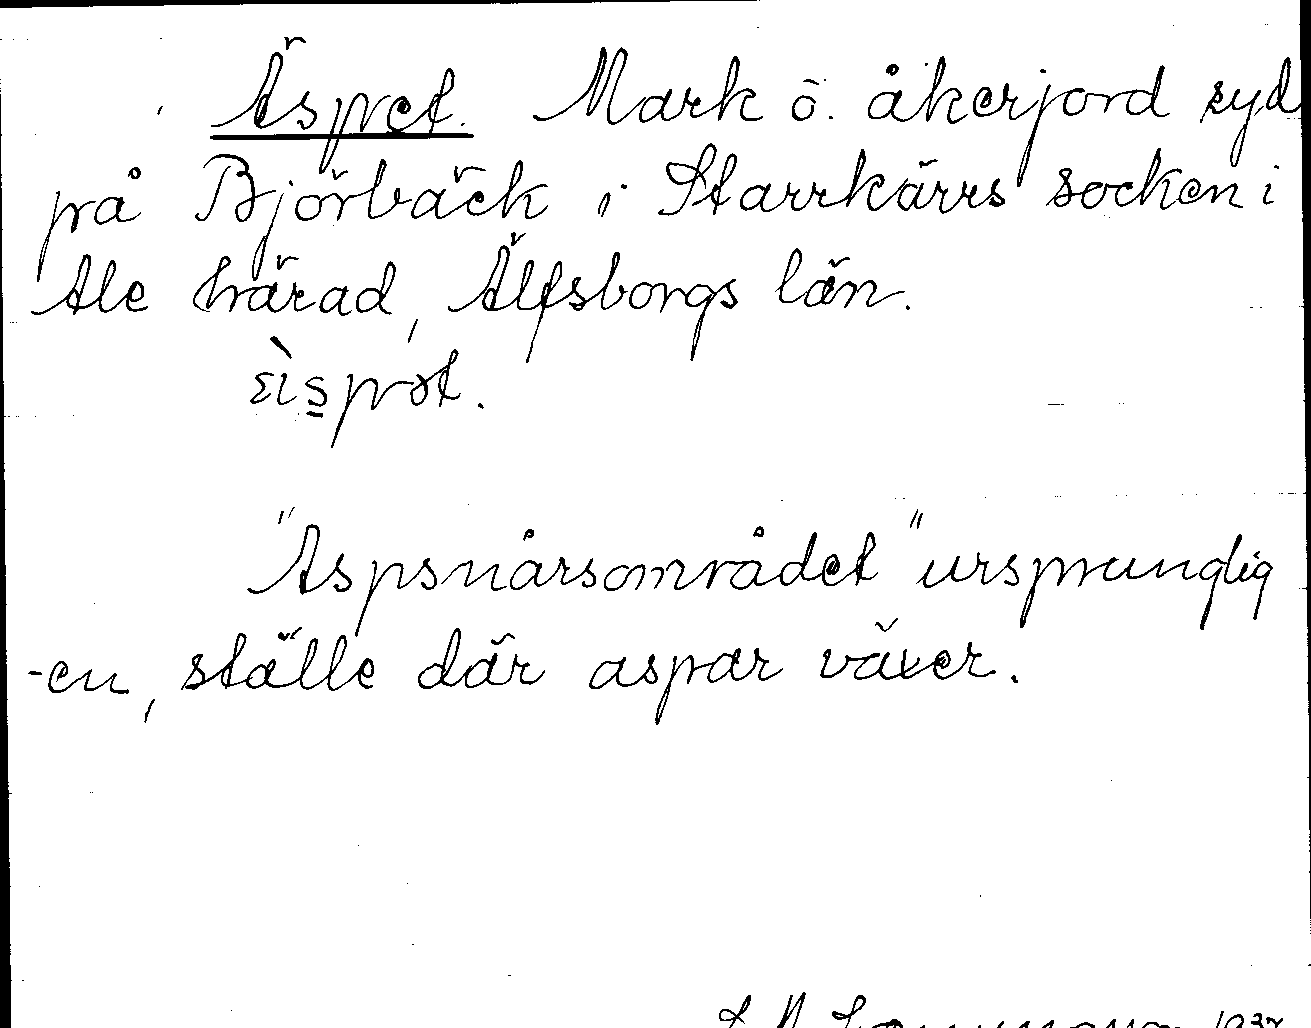 Äspet. Mark o. åkerjord syd
på Björbäck i Starrkärrs socken i
Ale härad, Älfsborgs län.
"Aspsnårsområdet" ursprunglig
-en, ställe där aspar växer.